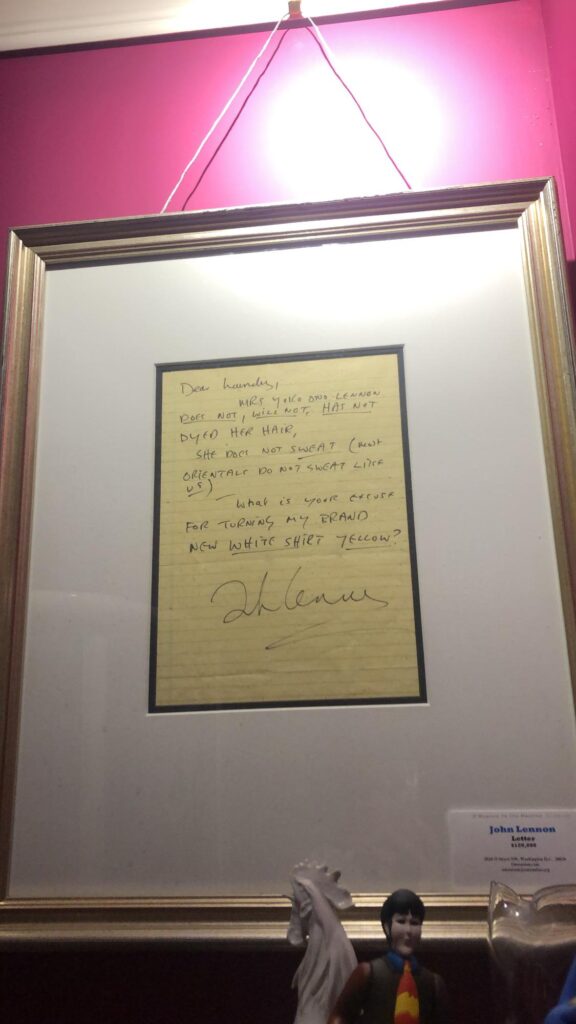 Dear Laundry,
MRS YOKO ONO LENNON
DOES NOT, WILL NOT, HAS NOT
DYED HER HAIR,
SHE DOES NOT SWEAT (MOST
ORIENTALS DO NOT SWEAT LIKE
US)
What is your excuse
FOR TURNING MY BRAND
NEW WHITE SHIRT YELLOW?
John Lennon
John Lennon
Letter